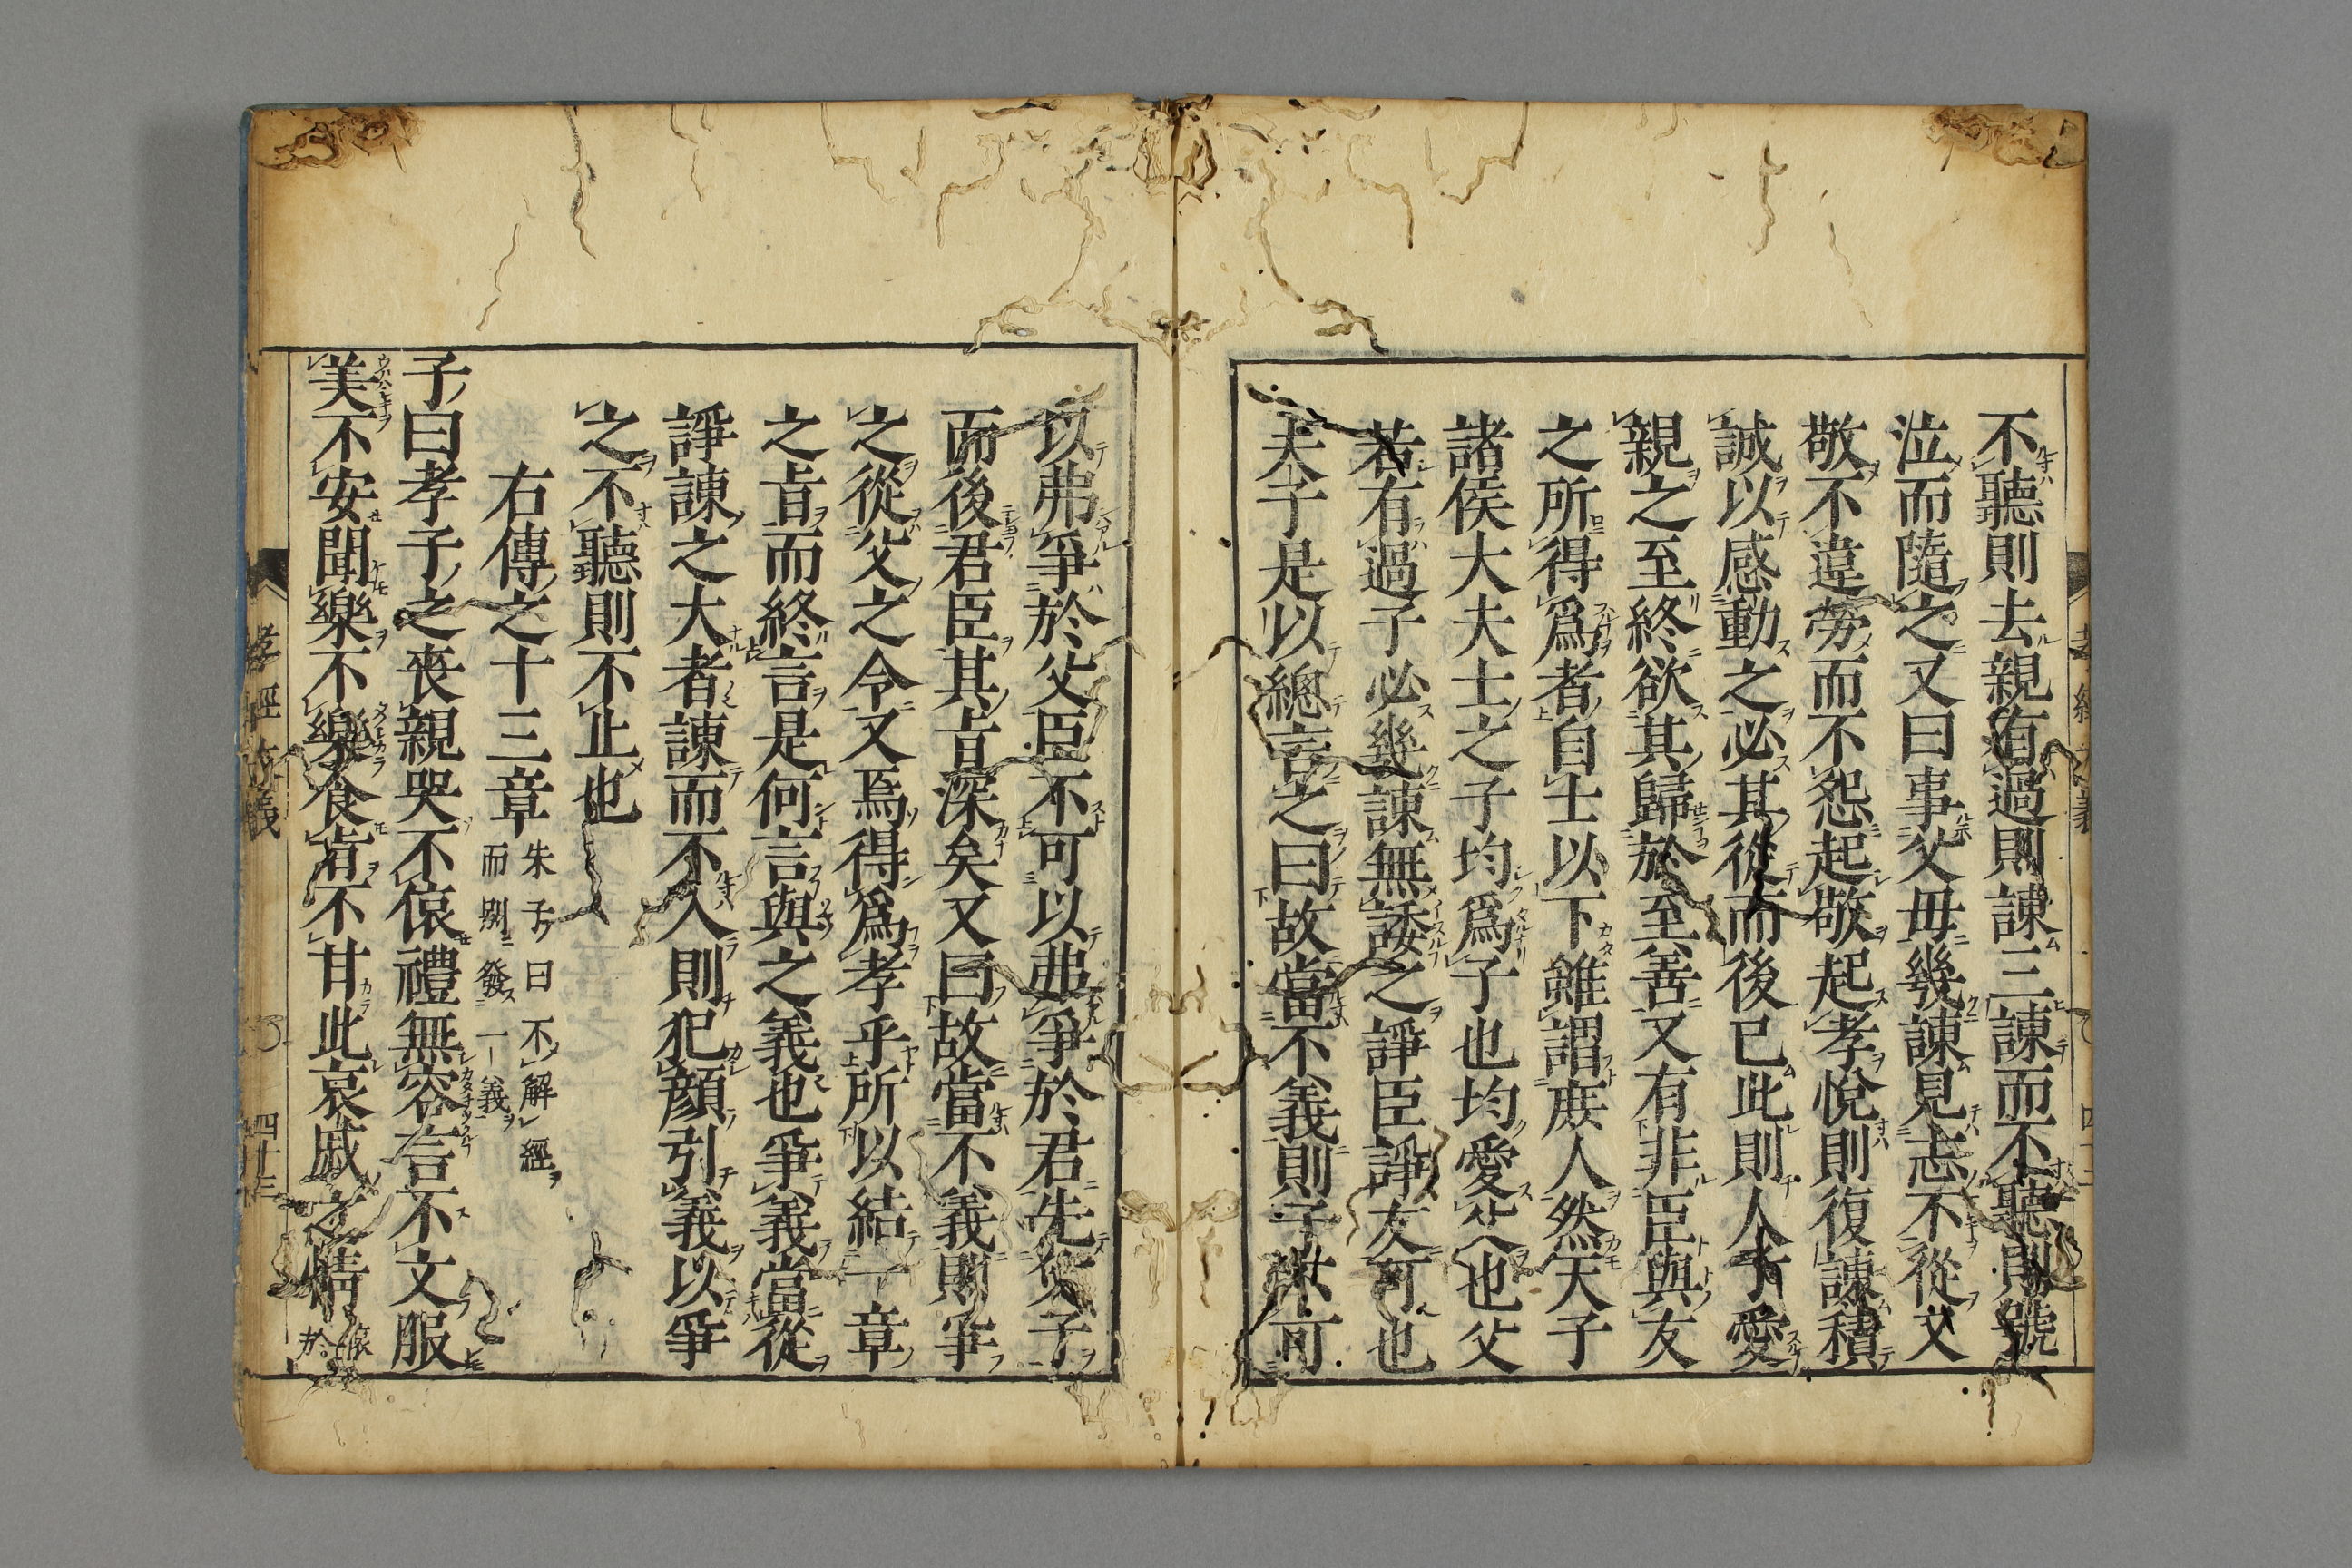 不聽則去親有過則諌三諌而不聽則號
泣而隨之又曰事父毋幾諌見志不從又
敬不違勞而不怨起敬起孝悅則復諌積
誠以感動之必其從而後已此則人子愛
親之至終欲其歸於至善又有非臣與友
之所得爲者自士以下雖謂庶人然天子
諸侯大夫士之子均爲子也均愛父也父
若有過子必幾諌無諉之諍臣諍友可也
夫子是以總言之曰故當不義則子不可
以弗爭於父臣不可以弗爭於君先父子
而後君臣其㫖深矣又曰故當不義則爭
之從父之令又焉得爲孝乎所以結一章
之㫖而終言是何言與之義也爭義當從
諍諌之大者諌而不入則犯顔引義以爭
之不聽則不止也
右傳之十三章
朱子曰不解經
而別發一義
子曰孝子之喪親哭不偯禮無容言不文服
美不安聞樂不樂食㫖不甘此哀戚之情
孝經
四十三